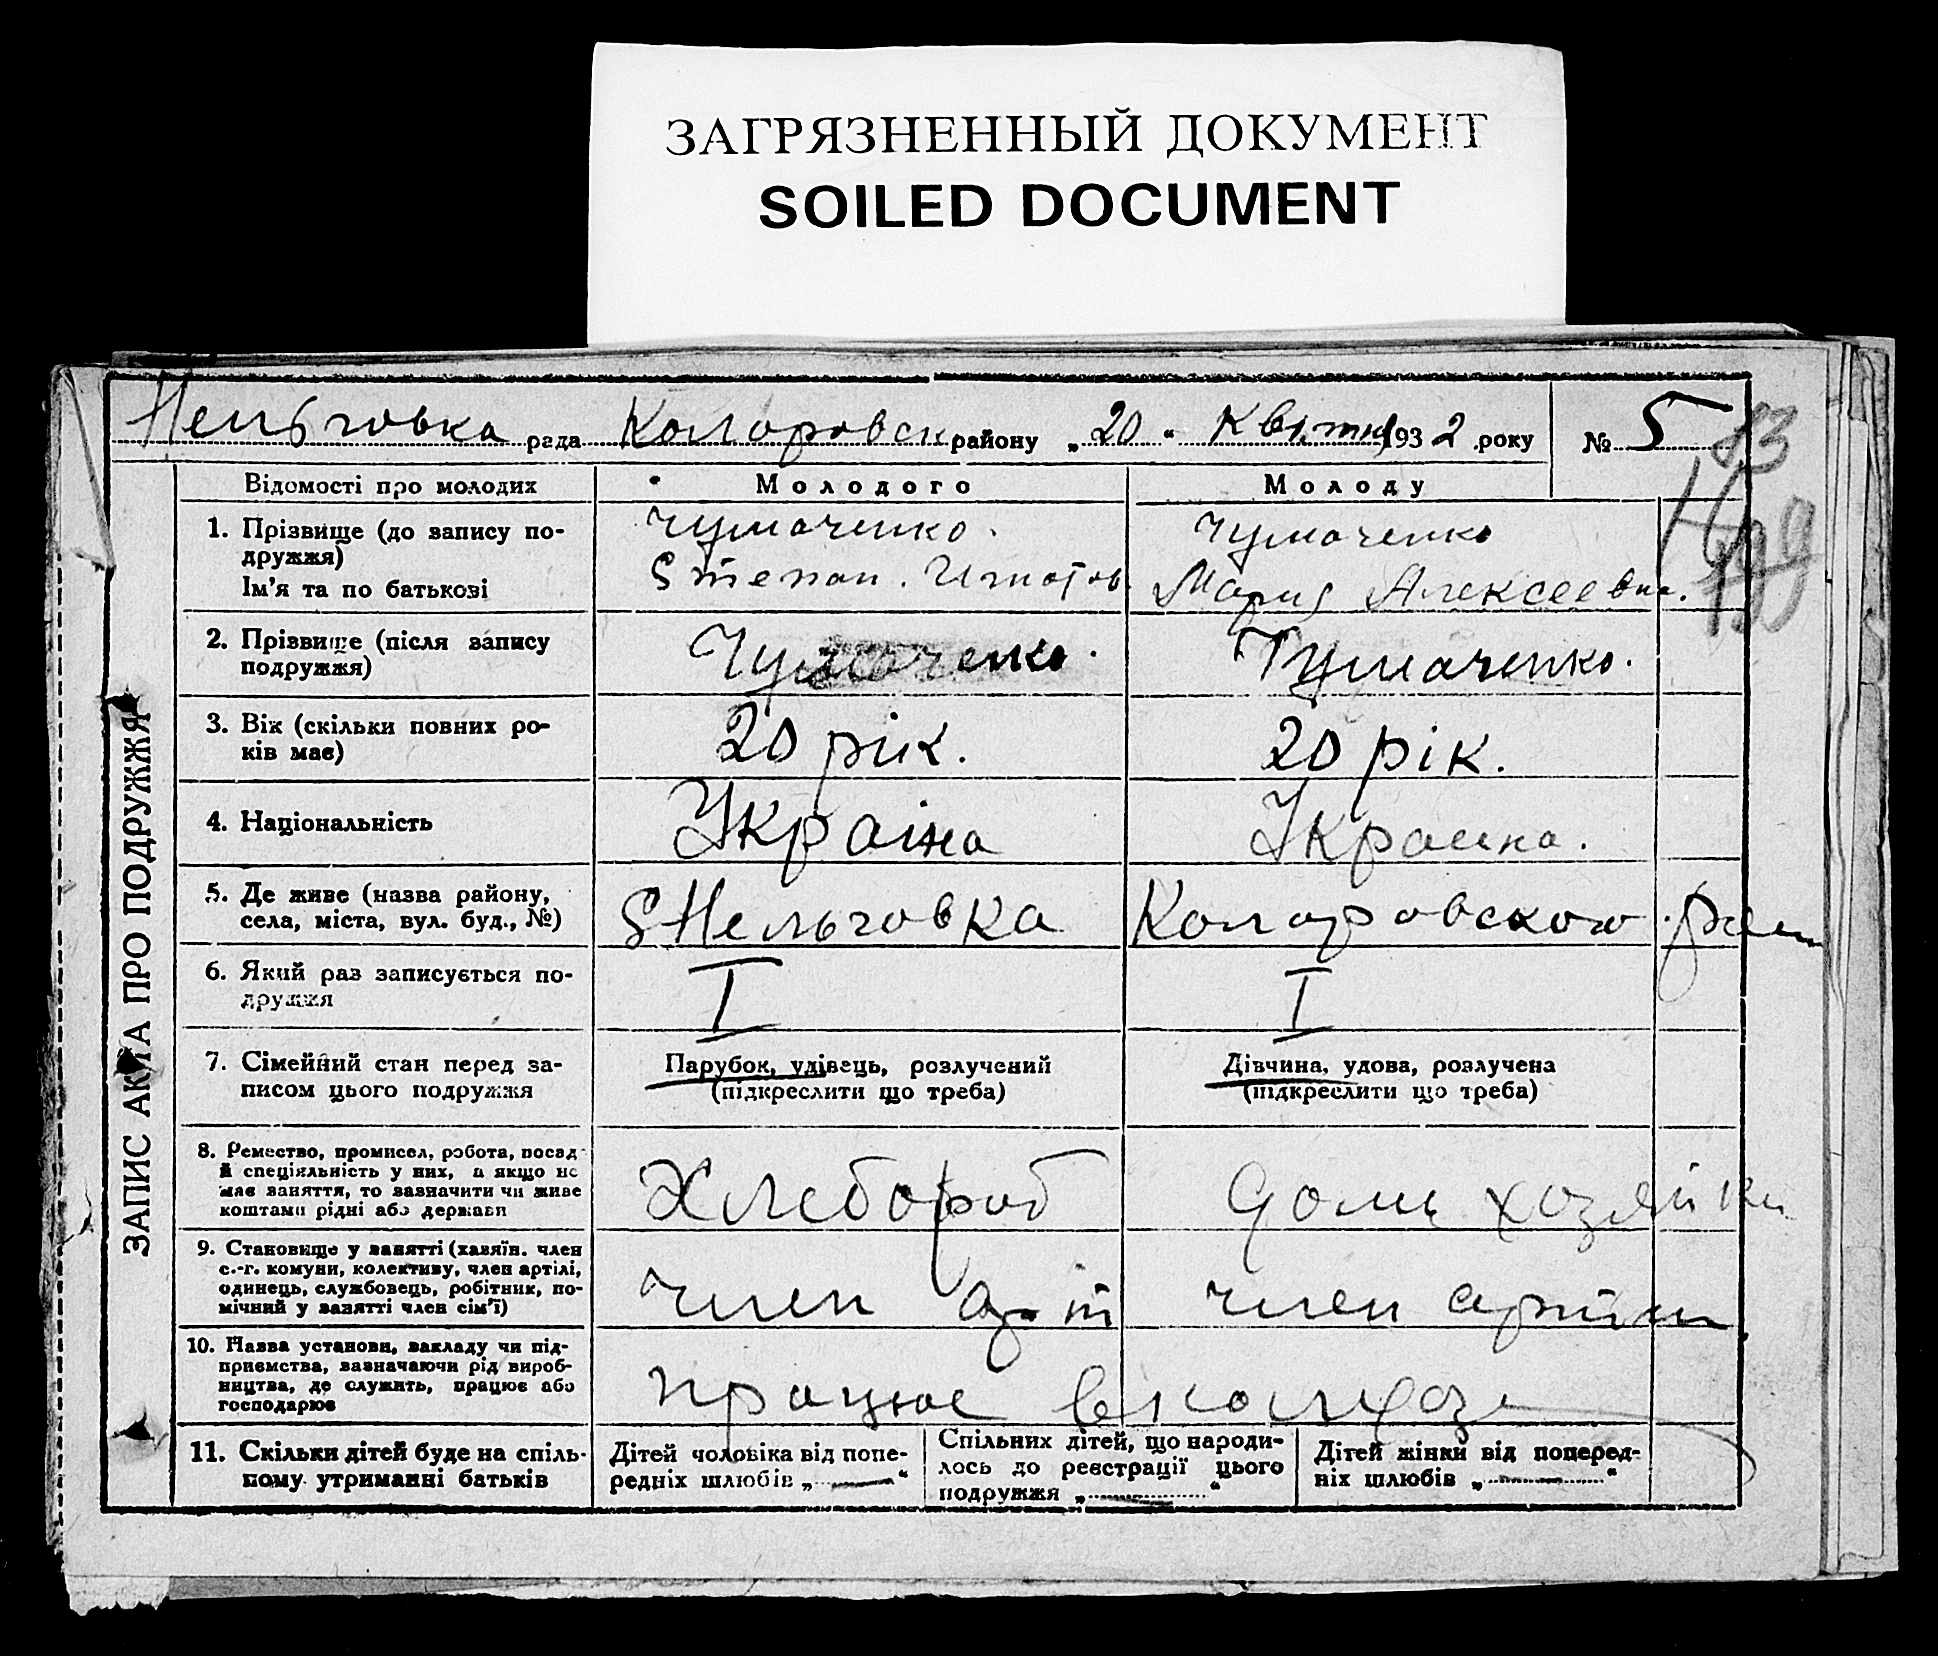 ЗАГРЯЗНЕННЫЙ ДОКУМЕНТ
SOILED DOCUMENT
Нельговка рада Коларовск району „20“ Квітня 1932 року № 5
83
199
ЗАПИС АКТА ПРО ПОДРУЖЖЯ
Відомості про молодих Молодого Молоду
1. Прізвище (до запису по-
дружжя)
Ім'я та по батькові
Чумаченко.
Степан. Игнатов.
Чумаченко
Мария Алексеевна.
2. Прізвище (після запису
подружжя)
Чумаченко.
Чумаченко.
3. Вік (скільки повних ро-
ків має)
20 рік.
20 рік.
4. Національність
Україна
Украина.
5. Де живе (назва району,
села, міста, вул. буд., №)
с Нельговка Коларовского
6. Який раз записується по-
дружжя
I
I
7. Сімейний стан перед за-
писом цього подружжя
Парубок, удівець, розлучений
(підкреслити що треба)
Дівчина, удова, розлучена
(підкреслити що треба)
8. Ремество, промисел, робота, посад
й спеціяльність у них, а якщо не
має заняття, то зазначити чи живе
коштами рідні або держави
Хлебороб
дома хозяйки
9. Становище у занятті (хазяїн. член
с.-г. комуни, колективу, член артілі,
одинець, службовець, робітник, по-
мічний у занятті член сім'ї)
член арт
член артили
10. Назва установи, закладу чи під-
приємства, зазначаючи рід вироб-
ництва, де служить, працює або
господарює
працює в колхозі
11. Скільки дітей буде на спіль-
ному утриманні батьків
Дітей чоловіка від попе-
редніх шлюбів „—“
Спільних дітей, що народи-
лось до реєстрації цього
подружжя „—“
Дітей жінки від поперед-
ніх шлюбів „—“